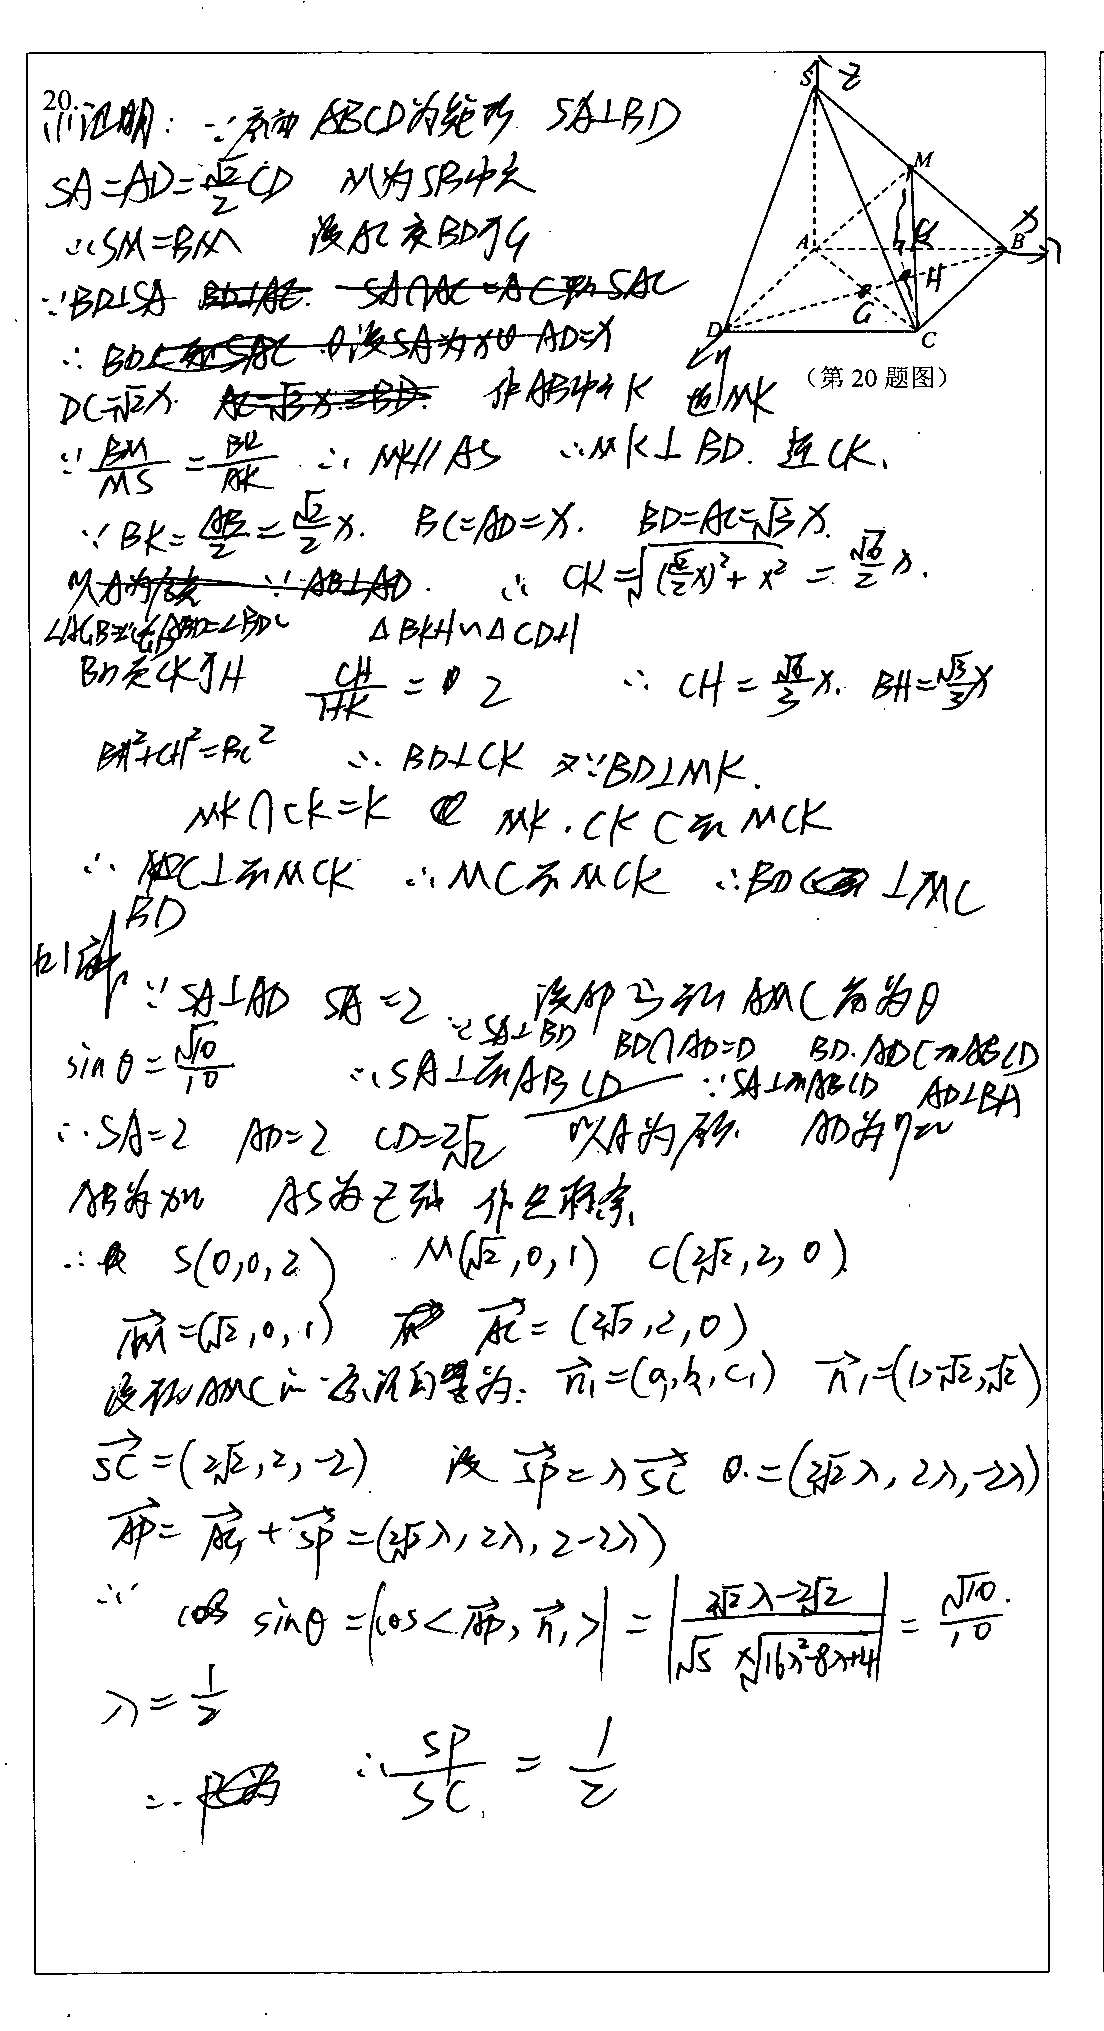 20.
(1)证明: ∵底面ABCD为矩形 SA⊥BD
SA=AD=√2/2 CD M为SB中点
∴SM=BM 设AC交BD于G
∵BD⊥SA
DC=√2x. 作AB中点K 连MK
∵BM/MS=BK/AK ∴MK//AS ∴MK⊥BD. 连CK.
∵BK=AB/2=√2/2 x. BC=AD=x. BD=AC=√3x.
∴CK=√((√2/2 x)²+x²)=√6/2 x.
△BKH∽△CDH
BD交CK于H CH/HK=2 ∴CH=√6/3 x. BH=√3/3 x
BH²+CH²=BC² ∴BD⊥CK 又∵BD⊥MK.
MK∩CK=K MK.CK⊂面MCK
∴BD⊥面MCK ∴MC⊂面MCK ∴BD⊥MC
(2)解
∵SA⊥AD SA=2 设AP与面AMC角为θ
∵SA⊥BD BD∩AD=D BD.AD⊂面ABCD
sinθ=√10/10 ∴SA⊥面ABCD ∵SA⊥面ABCD AD⊥BA
∴SA=2 AD=2 CD=2√2 以A为原点. AD为y轴
AB为x轴 AS为z轴 作坐标系.
∴S(0,0,2) M(√2,0,1) C(2√2,2,0)
AM=(√2,0,1) AC=(2√2,2,0)
设面AMC的一条法向量为: n₁=(a,b,c) n₁=(1,-√2,-√2)
SC=(2√2,2,-2) 设SP=λSC=(2√2λ,2λ,-2λ)
AP=AS+SP=(2√2λ,2λ,2-2λ)
∵ sinθ=|cos<AP,n₁>|=|(2√2λ-2√2)/(√5×√(16λ²-8λ+4))|=√10/10.
λ=1/2
∴SP/SC=1/2
S
z
M
x
A
K
B
H
G
D
C
y
(第20题图)